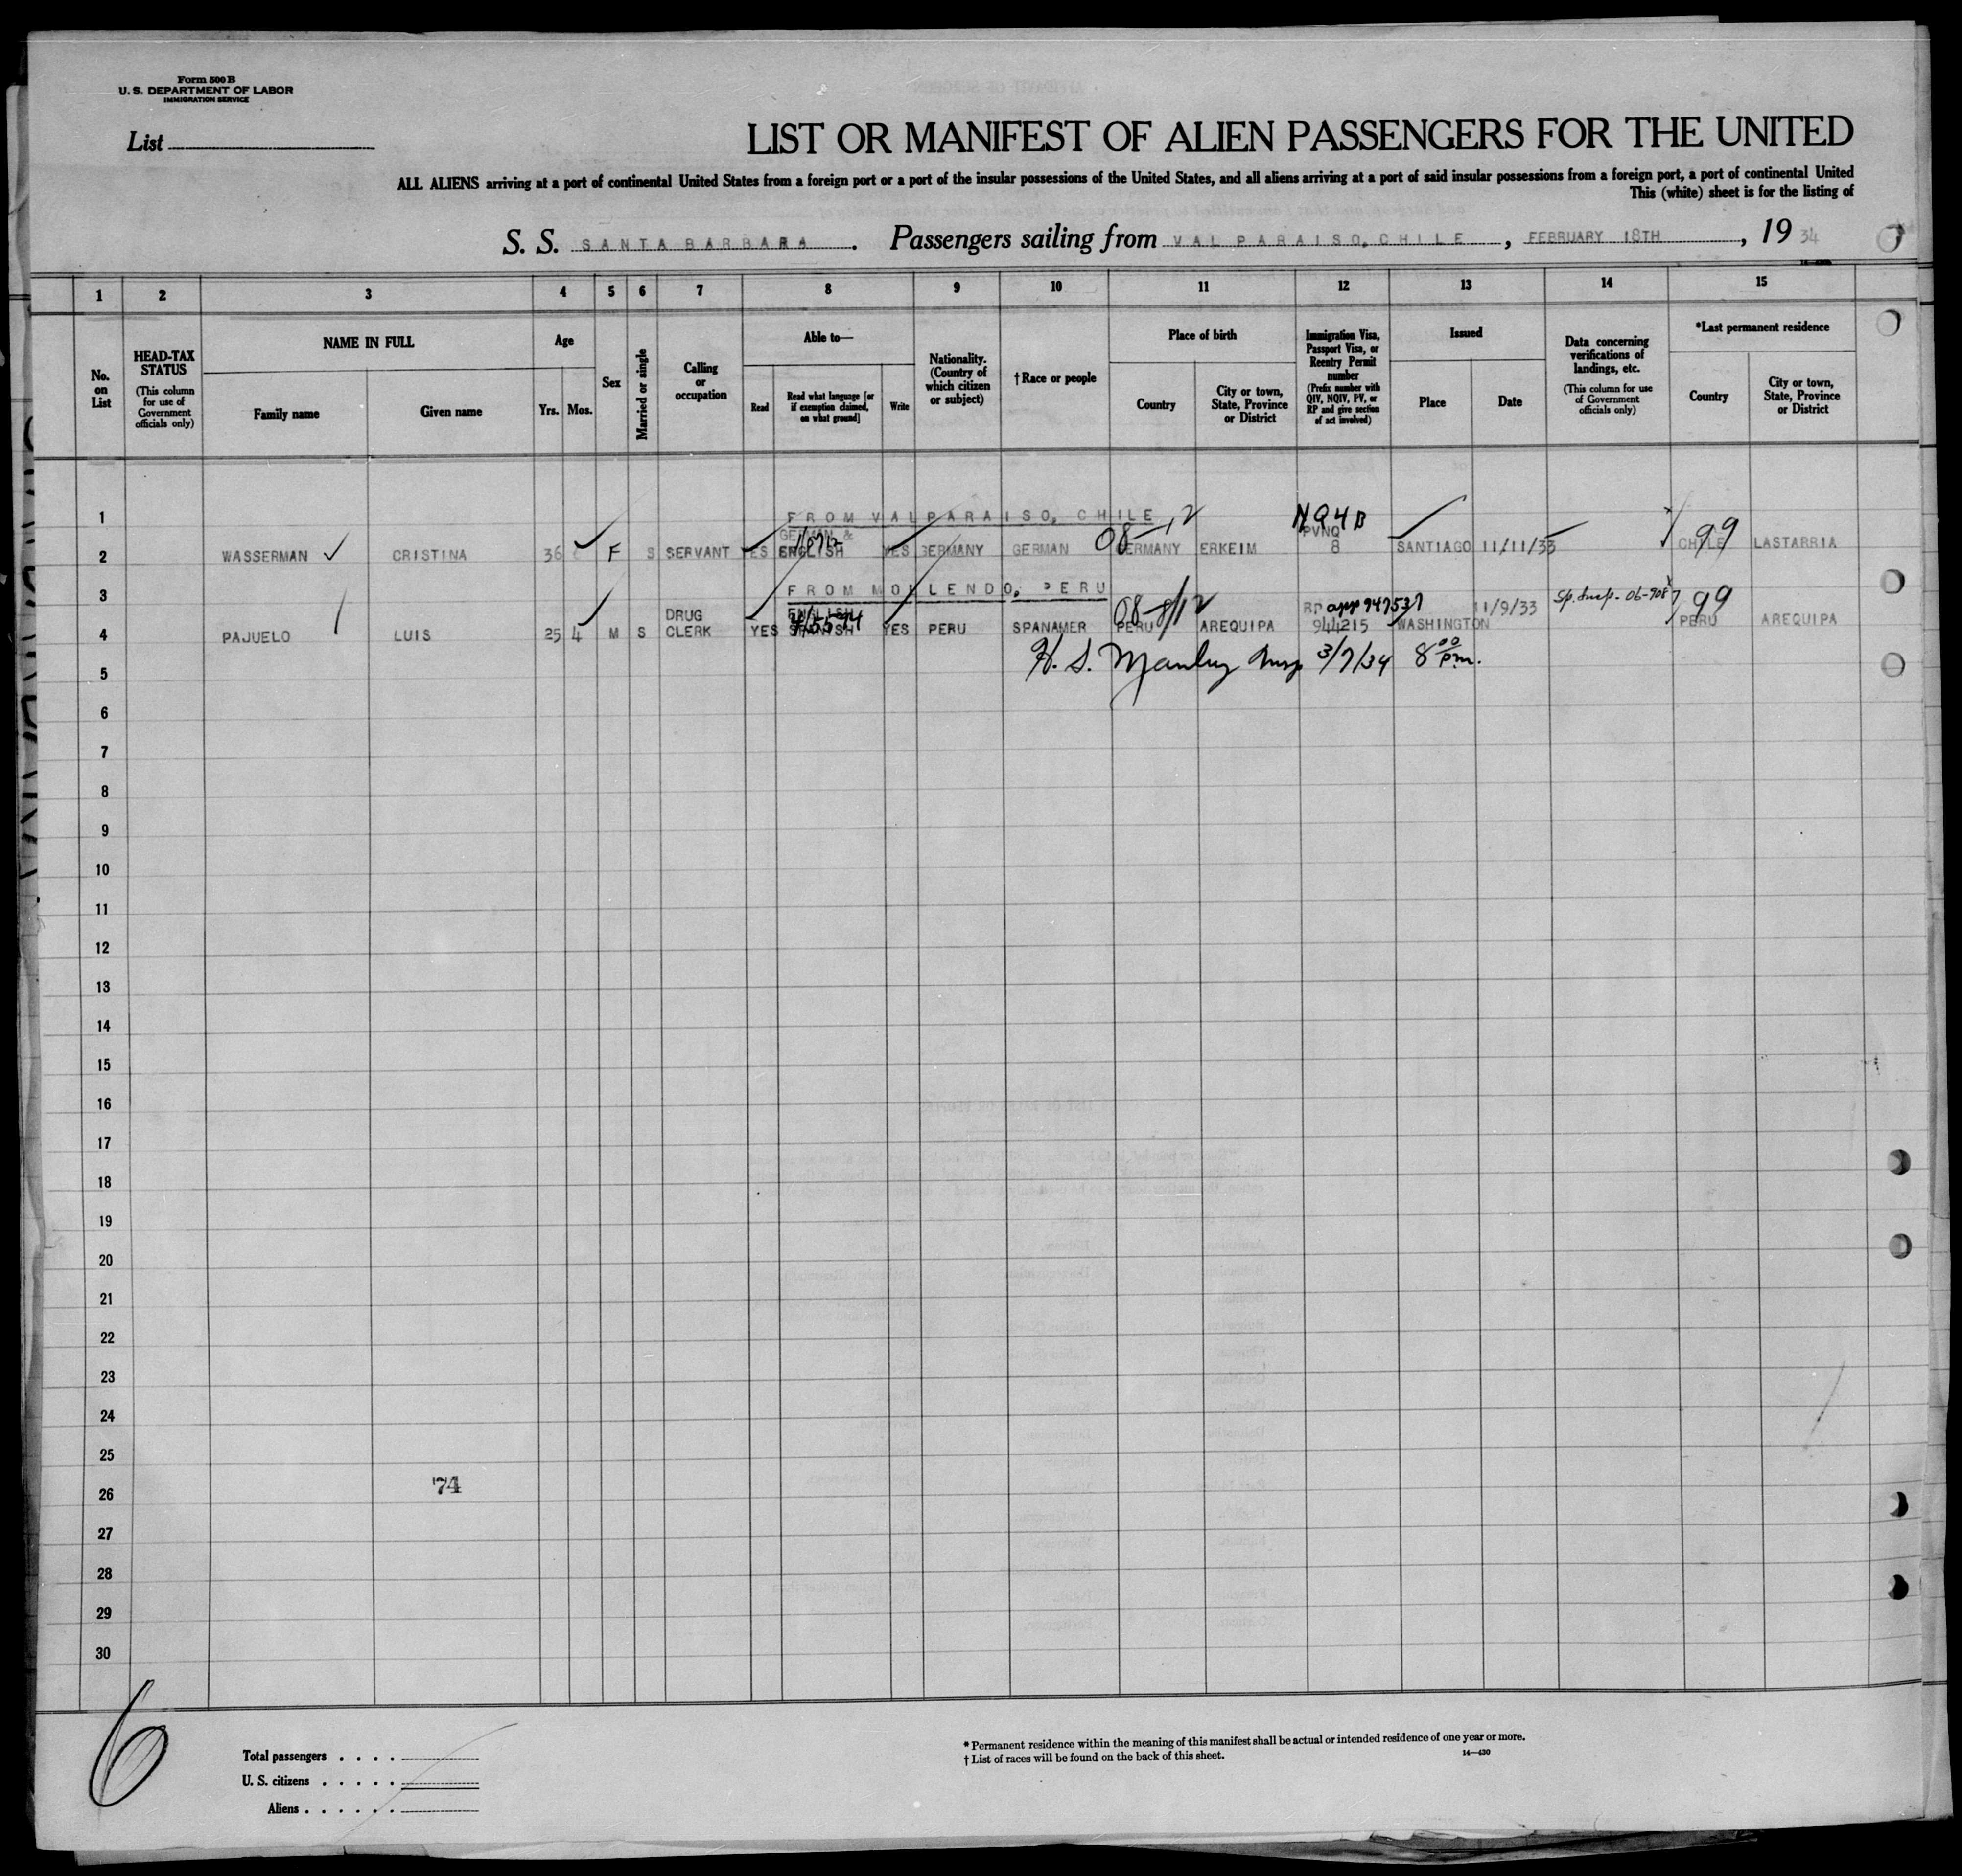 Form 500 B
U. S. DEPARTMENT OF LABOR
IMMIGRATION SERVICE
List
LIST OR MANIFEST OF ALIEN PASSENGERS FOR THE UNITED
ALL ALIENS arriving at a port of continental United States from a foreign port or a port of the insular possessions of the United States, and all aliens arriving at a port of said insular possessions from a foreign port, a port of continental United
This (white) sheet is for the listing of
S. S. SANTA BARBARA . Passengers sailing from VALPARAISO, CHILE , FEBRUARY 18TH , 19 34
1 2 3 4 5 6 7 8 9 10 11 12 13 14 15
No. on List
HEAD-TAX STATUS
(This column for use of Government officials only)
NAME IN FULL
Family name
Given name
Age
Yrs. Mos.
Sex
Married or single
Calling or occupation
Able to—
Read
Read what language [or if exemption claimed, on what ground]
Write
Nationality. (Country of which citizen or subject)
† Race or people
Place of birth
Country
City or town, State, Province or District
Immigration Visa, Passport Visa, or Reentry Permit number
(Prefix number with QIV, NQIV, PV, or RP and give section of act involved)
Issued
Place
Date
Data concerning verifications of landings, etc.
(This column for use of Government officials only)
*Last permanent residence
Country
City or town, State, Province or District
1 FROM VALPARAISO, CHILE NQ4B
GERMAN & PVNQ
2 WASSERMAN CRISTINA 36 F S SERVANT YES ENGLISH YES GERMANY GERMAN 08 GERMANY ERKEIM 8 SANTIAGO 11/11/33 CHILE 99 LASTARRIA
3 FROM MOLLENDO, PERU
DRUG ENGLISH RP app 947537 11/9/33 99
4 PAJUELO LUIS 25 4 M S CLERK YES SPANISH YES PERU SPANAMER PERU AREQUIPA 944215 WASHINGTON PERU AREQUIPA
H. S. Manley Insp 3/7/34 8 00 P.m.
5
6
7
8
9
10
11
12
13
14
15
16
17
18
19
20
21
22
23
24
25
26 74
27
28
29
30
6
Total passengers . . . .
U. S. citizens . . . . .
Aliens . . . . . .
* Permanent residence within the meaning of this manifest shall be actual or intended residence of one year or more.
† List of races will be found on the back of this sheet.
14—430